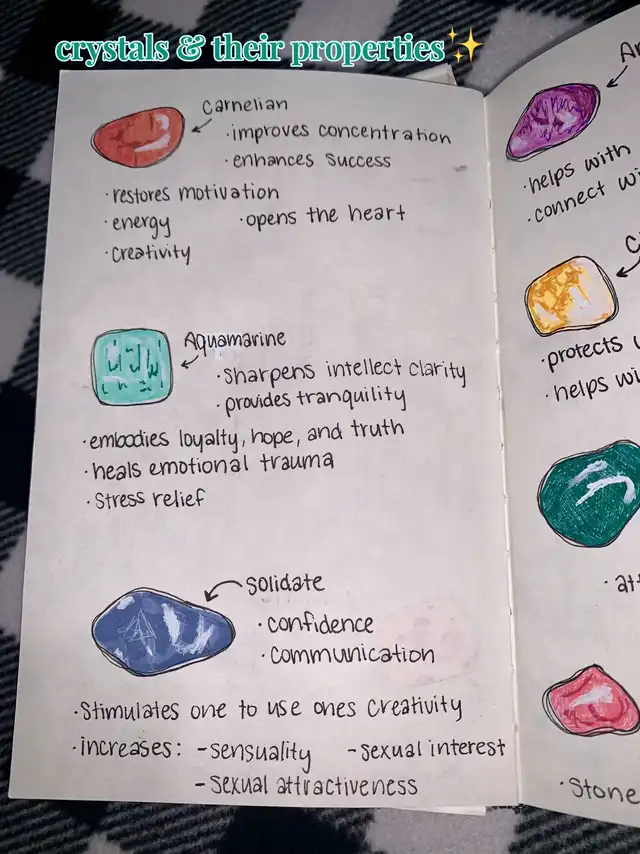 crystals & their properties
Carnelian
· improves concentration
· enhances success
· restores motivation
· energy
· opens the heart
· creativity
Aquamarine
· sharpens intellect clarity
· provides tranquility
· embodies loyalty, hope, and truth
· heals emotional trauma
· stress relief
solidate
· confidence
· communication
· stimulates one to use ones creativity
· increases: - sensuality - sexual interest
- sexual attractiveness
· helps with
· connect
· protects
· helps
· Stone